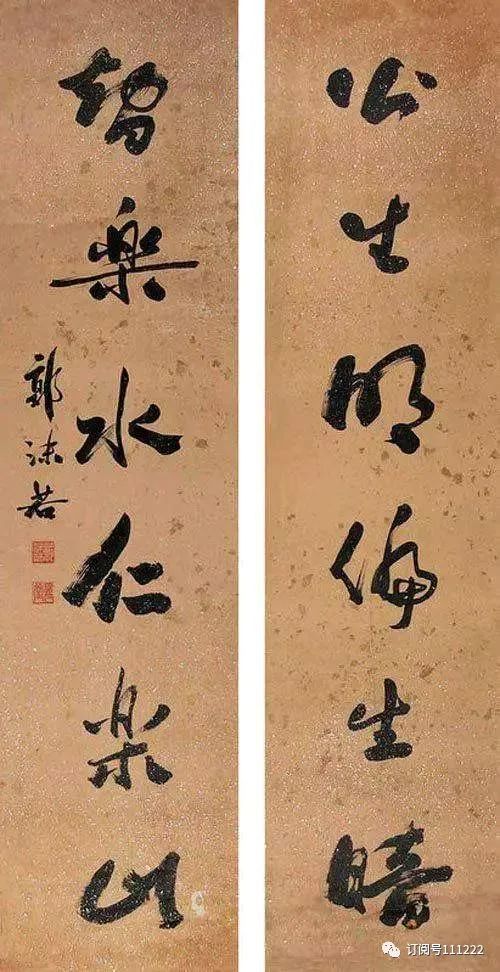 公生明偏生暗
智樂水仁樂山
郭沫若
订阅号111222